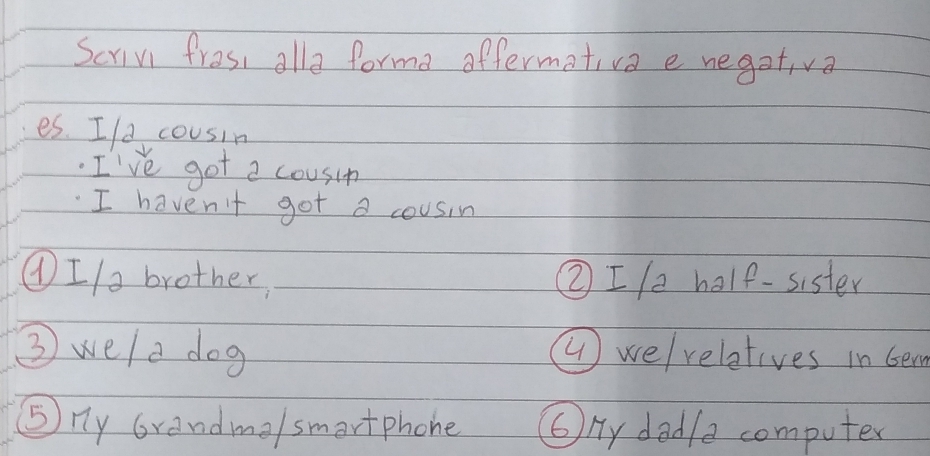 Scrivi frasi alla forma affermativa e negativa
es. I/a cousin
• I've got a cousin
• I haven't got a cousin
① I/a brother,
② I/a half-sister
③ we/a dog
④ we/relatives in Germ
⑤ My Grandma/smartphone
⑥ My dad/a computer